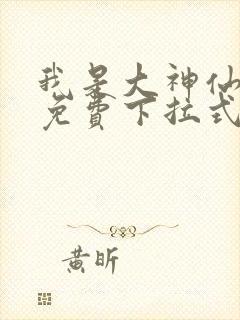 我是大神仙
免費下拉式
黃昕